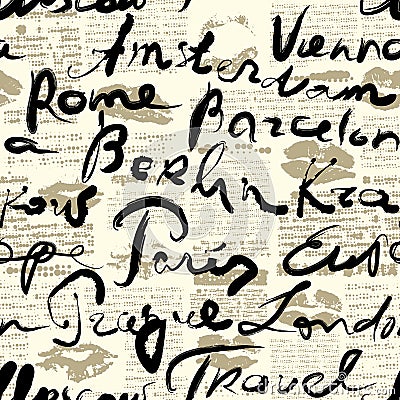 Moscow
Vienna
Amsterdam
Rome
Barcelon
a
Berlin
Kra
kow
ope
Paris
Euro
n
Prague
London
Moscow
Travel